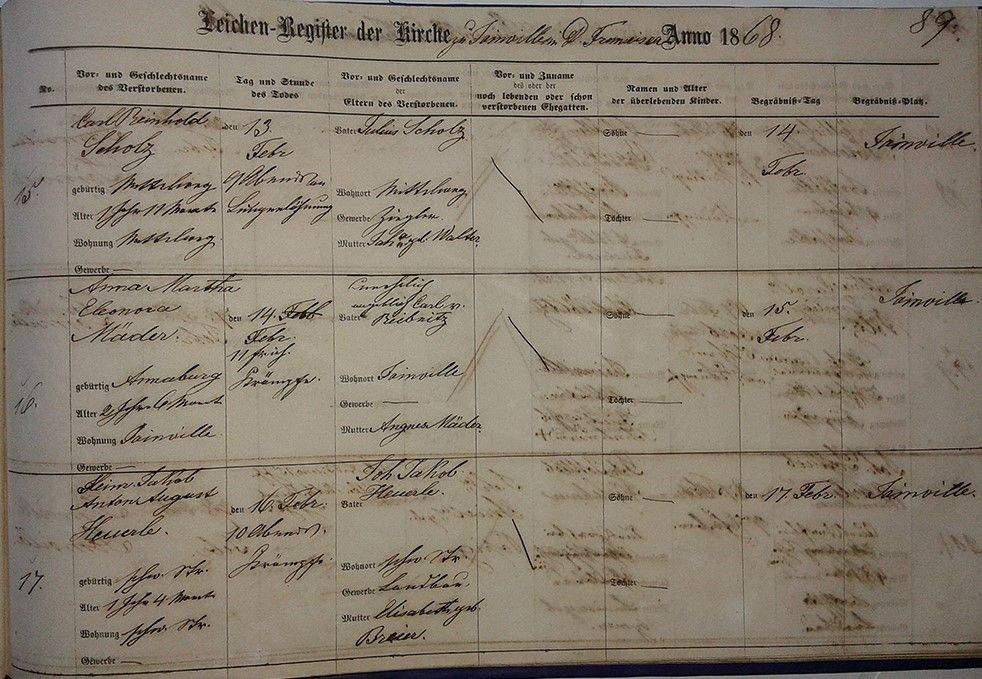 Leichen-Register der Kirche zu Joinville in D. Francisca Anno 1868.
89.
No.
Vor- und Geschlechtsname
des Verstorbenen.
Tag und Stunde
des Todes
Vor- und Geschlechtsname
der
Eltern des Verstorbenen.
Vor- und Zuname
des oder der
noch lebenden oder schon
verstorbenen Ehegatten.
Namen und Alter
der überlebenden Kinder.
Begräbniß-Tag
Begräbniß-Platz.
15.
Carl Reinhold
Scholz
gebürtig
Alter 1 Jahr 11 Monate
Wohnung
Gewerbe —
den 13.
Febr
9 Abends an
Vater Julius Scholz
Wohnort
Gewerbe Ziegler
Mutter geb. Walter
Söhne —
Töchter —
den 14
Febr
Joinville.
16.
Anna Martha
Eleonora
Mäder.
gebürtig Annaburg
Alter 2 Jahr Monat
Wohnung Joinville.
Gewerbe —
den 14. Febr
Febr.
11 früh.
Krämpfe.
unehelich
angeblich Carl v.
Vater Ribnitz
Wohnort Joinville
Gewerbe —
Mutter Angnes Mäder.
Söhne —
Töchter —
den 15.
Febr.
Joinville
17.
Heinr. Jakob
Anton August
Heuerle.
gebürtig schw. Str.
Alter 1 Jahr 4 Monate
Wohnung schw. Str.
Gewerbe —
den 16. Febr.
10 Abends.
Krämpfe
Joh. Jakob
Heuerle.
Vater
Wohnort schw. Str.
Gewerbe Landbau.
Mutter Elisabeth geb.
Breier.
Söhne —
Töchter —
den 17 Febr.
Joinville.